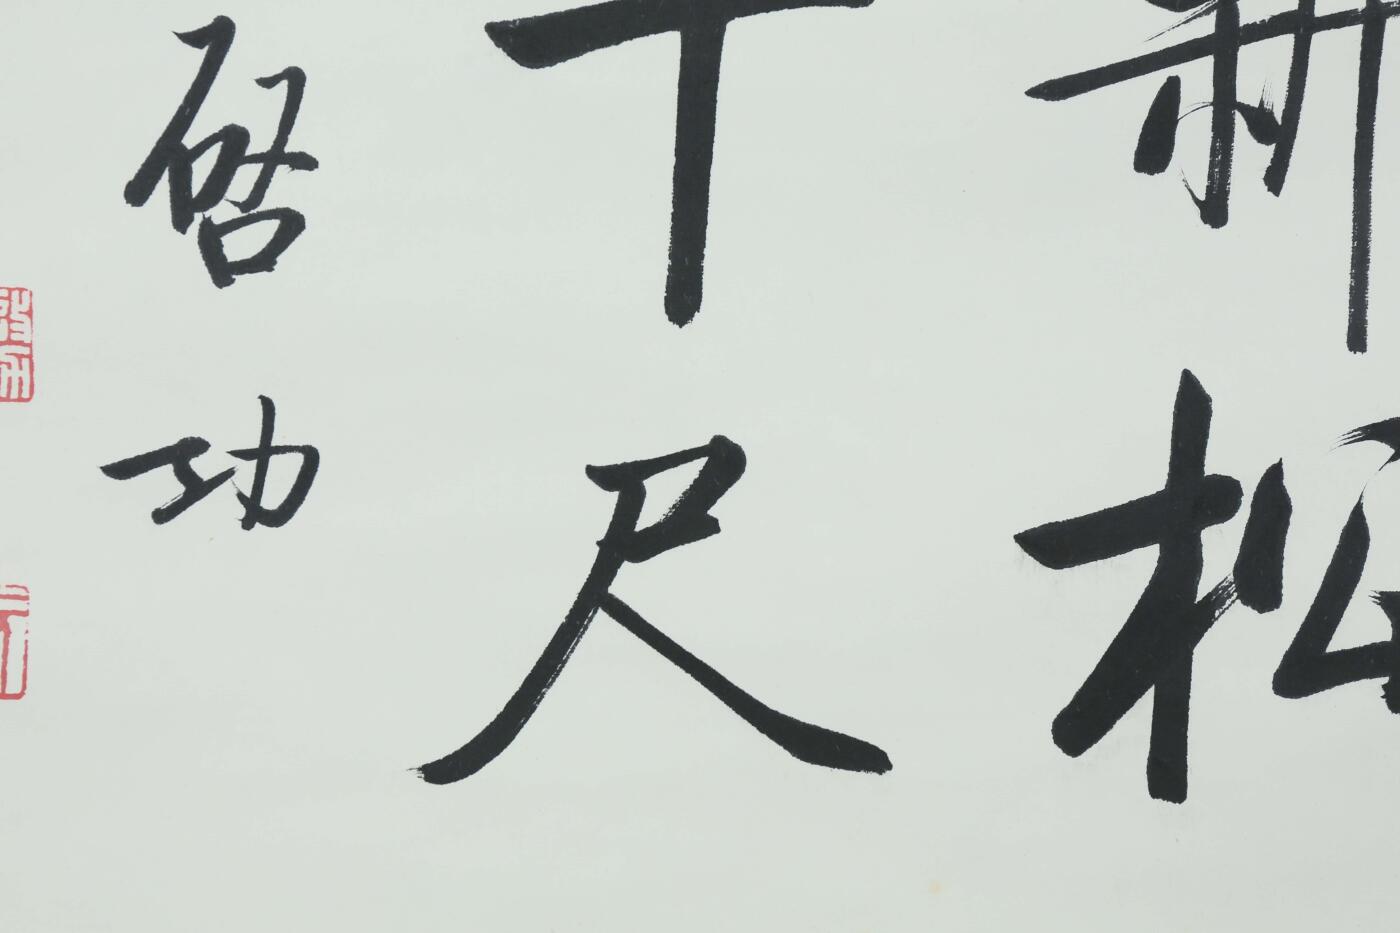 新松
千尺
啓功